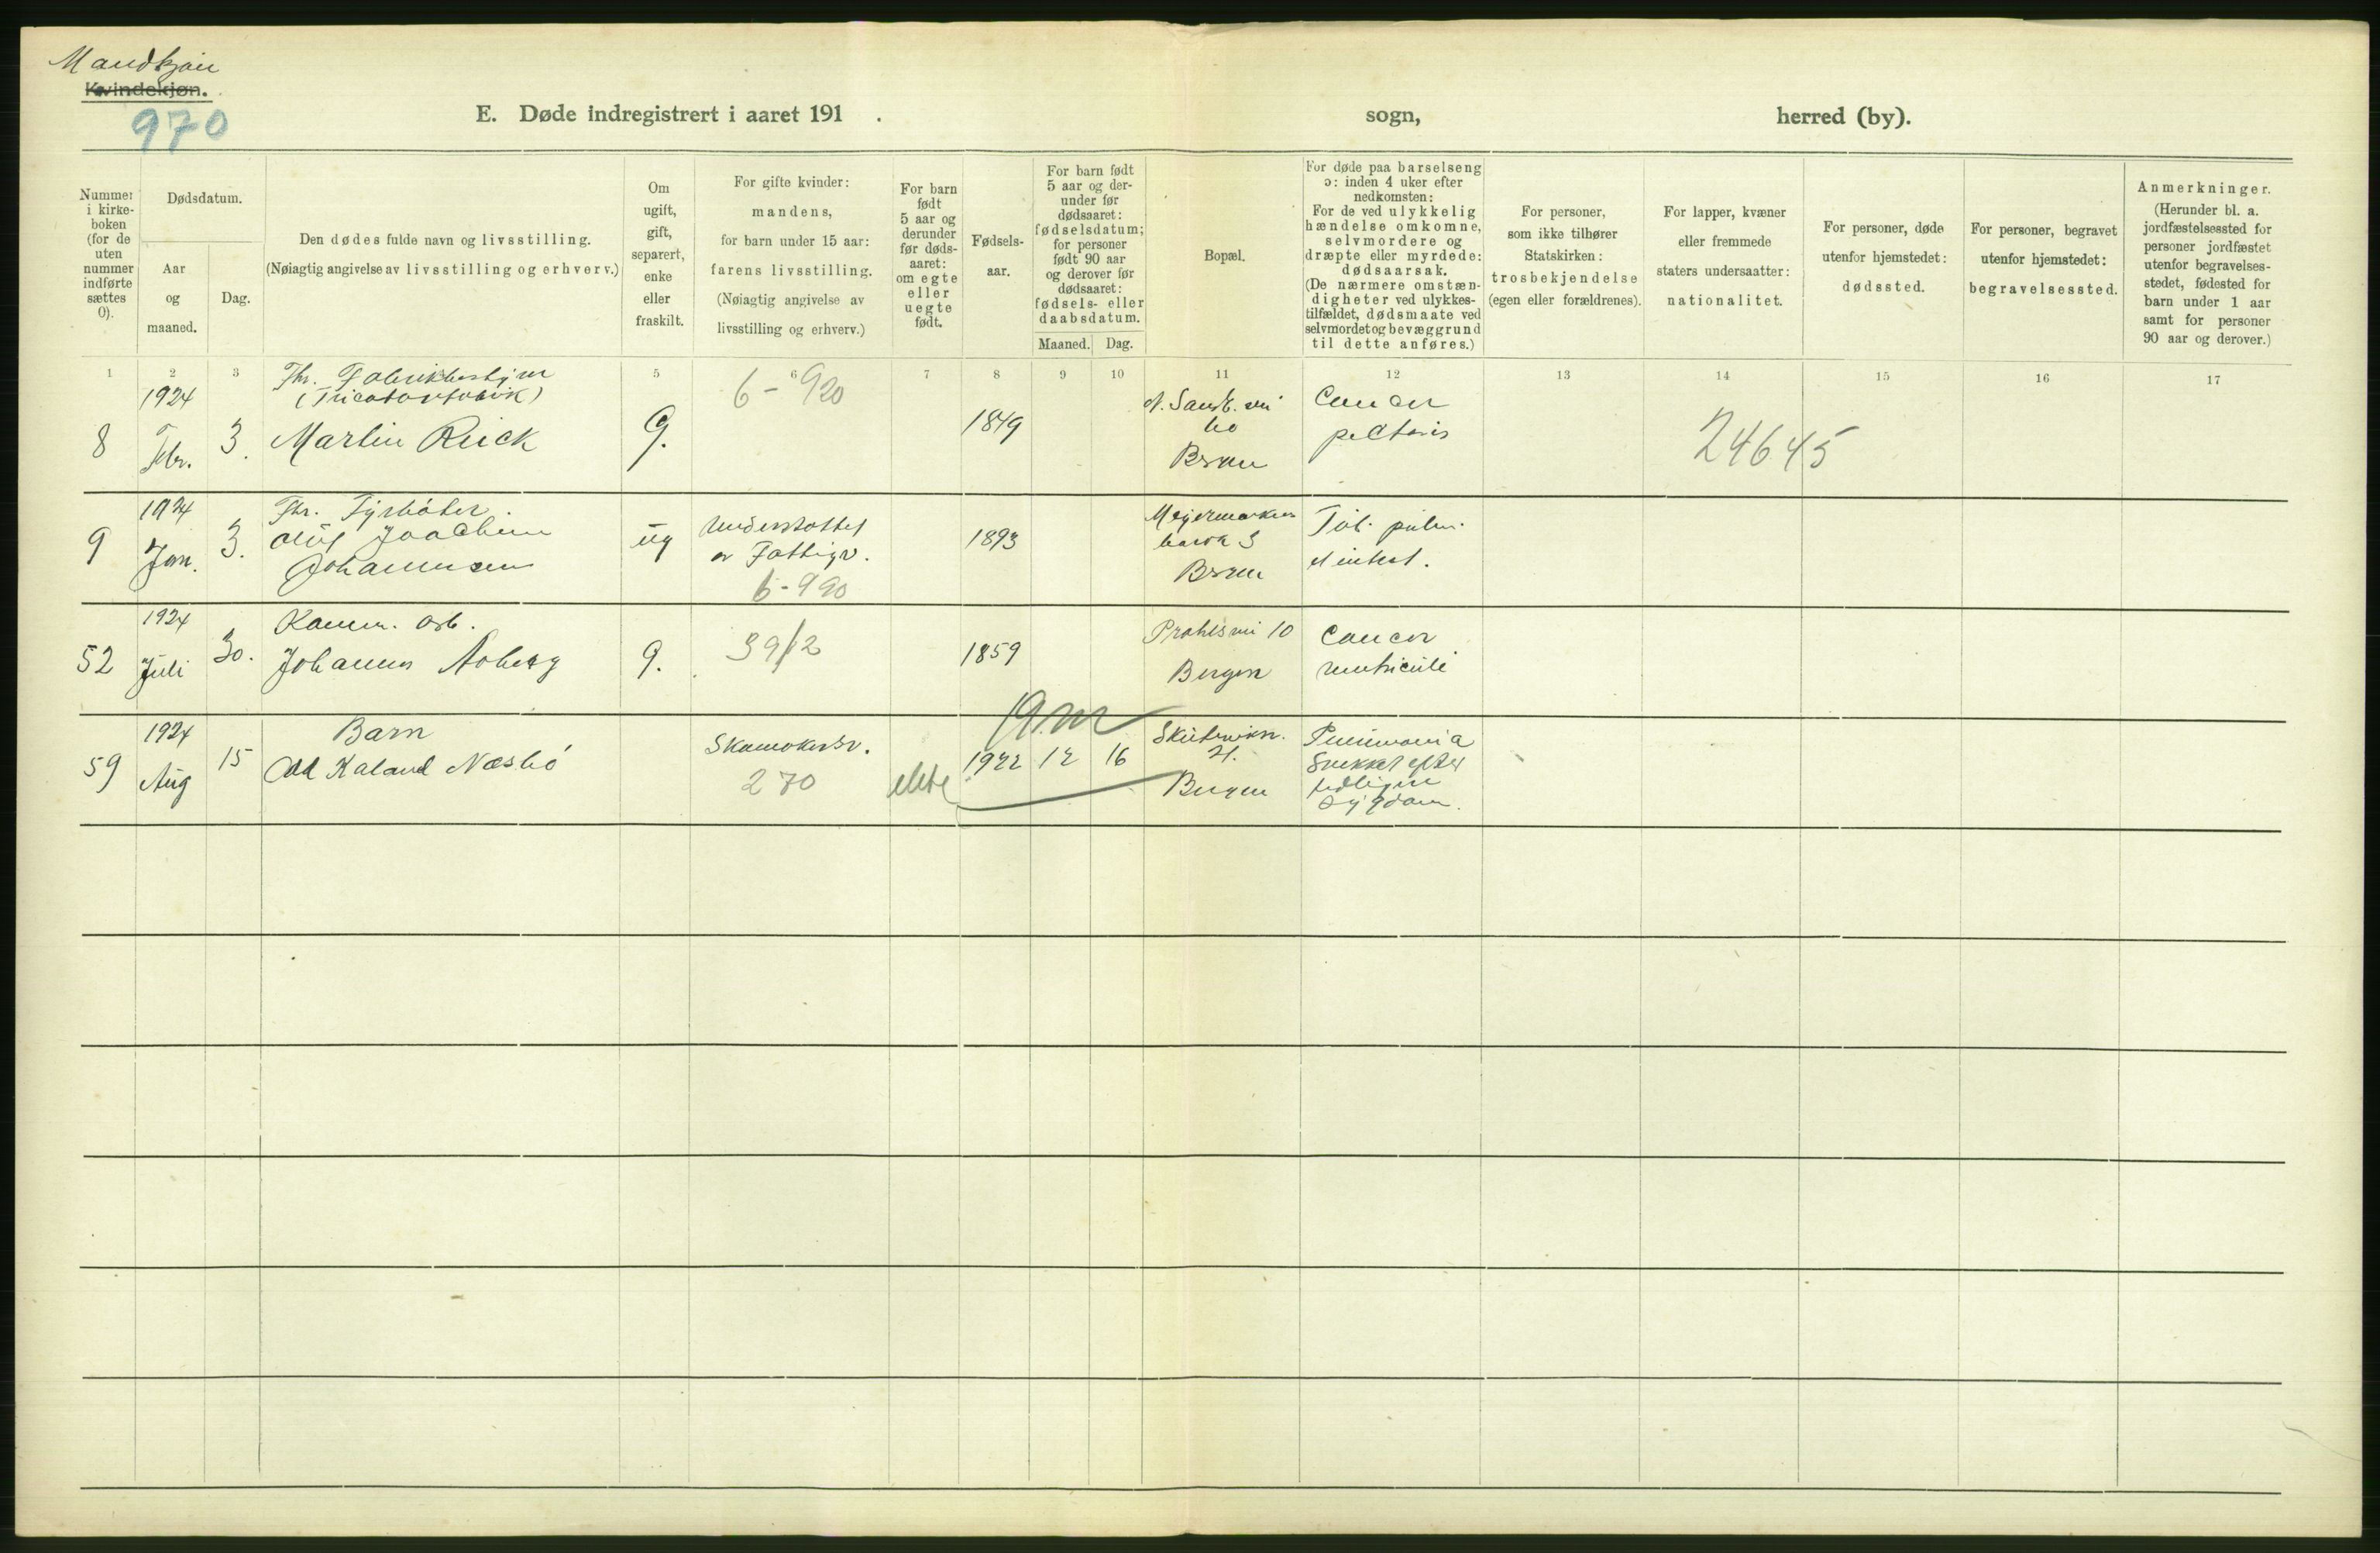 Mandkjøn
Kvindekjøn.
970
E. Døde indregistrert i aaret 191 .
sogn,
herred (by).
Nummer i kirke-boken (for de uten nummer indførte sættes 0).
Dødsdatum.
Aar og maaned.
Dag.
Den dødes fulde navn og livsstilling.
(Nøiagtig angivelse av livsstilling og erhverv.)
Om ugift, gift, separert, enke eller fraskilt.
For gifte kvinder: mandens, for barn under 15 aar: farens livsstilling. (Nøiagtig angivelse av livsstilling og erhverv.)
For barn født 5 aar og derunder før døds-aaret: om egte eller uegte født.
Fødsels-aar.
For barn født 5 aar og der-under før dødsaaret: fødselsdatum; for personer født 90 aar og derover før dødsaaret: fødsels- eller daabsdatum.
Maaned.
Dag.
Bopæl.
For døde paa barselseng ɔ: inden 4 uker efter nedkomsten: For de ved ulykkelig hændelse omkomne, selvmordere og dræpte eller myrdede: dødsaarsak. (De nærmere omstæn-digheter ved ulykkes-tilfældet, dødsmaate ved selvmordet og bevæggrund til dette anføres.)
For personer, som ikke tilhører Statskirken: trosbekjendelse (egen eller forældrenes).
For lapper, kvæner eller fremmede staters undersaatter: nationalitet.
For personer, døde utenfor hjemstedet: dødssted.
For personer, begravet utenfor hjemstedet: begravelsessted.
Anmerkninger. (Herunder bl. a. jordfæstelsessted for personer jordfæstet utenfor begravelses-stedet, fødested for barn under 1 aar samt for personer 90 aar og derover.)
1 2 3 5 6 7 8 9 10 11 12 13 14 15 16 17
Fhr. Fabrikbestyrer
(Tricotagefabrik)
8 1924 Febr. 3. Martin Reick G. 6-920 1849
Bergen
Cancer
pectoris
24645
Fhr. Fyrbøter.
9 1924 Jan. 3. Oluf Joachim
Johannesen
ug
Understøttet
av Fattigv.
6-990
1893
Meyermarken
barak 3
Bergen
Tub. pulm.
et intest.
Komm. arb.
52 1924 Juli 30. Johannes Aaberg G. 39/2 1859
Prahlsvei 10
Bergen
Cancer
ventriculi
Barn
59 1924 Aug 15 Odd Kaland Næsbø
Skomakersv.
270
ekte
19 m
1922 12 16
Skuteviksv.
21.
Bergen
Pneumonia
Svekket efter
tidligere
sygdom.